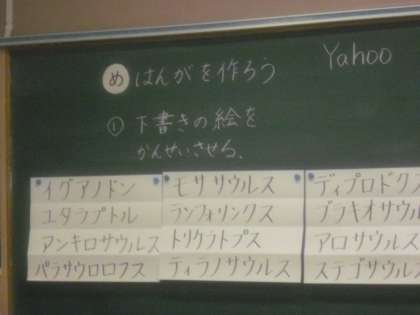 め はんがを作ろう
Yahoo
① 下書きの絵を
かんせいさせる。
イグアノドン
ユタラプトル
アンキロサウルス
パラサウロロフス
モササウルス
ランフォリンクス
トリケラトプス
ティラノサウルス
ディプロドクス
ブラキオサウル
アロサウルス
ステゴサウル